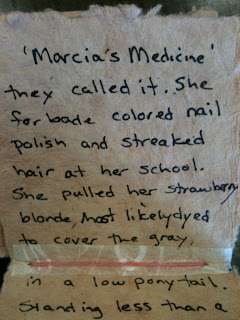 'Marcia's Medicine'
they called it. She
forbade colored nail
polish and streaked
hair at her school.
She pulled her strawberry
blonde, most likely dyed
to cover the gray,
in a low ponytail.
Standing less than a